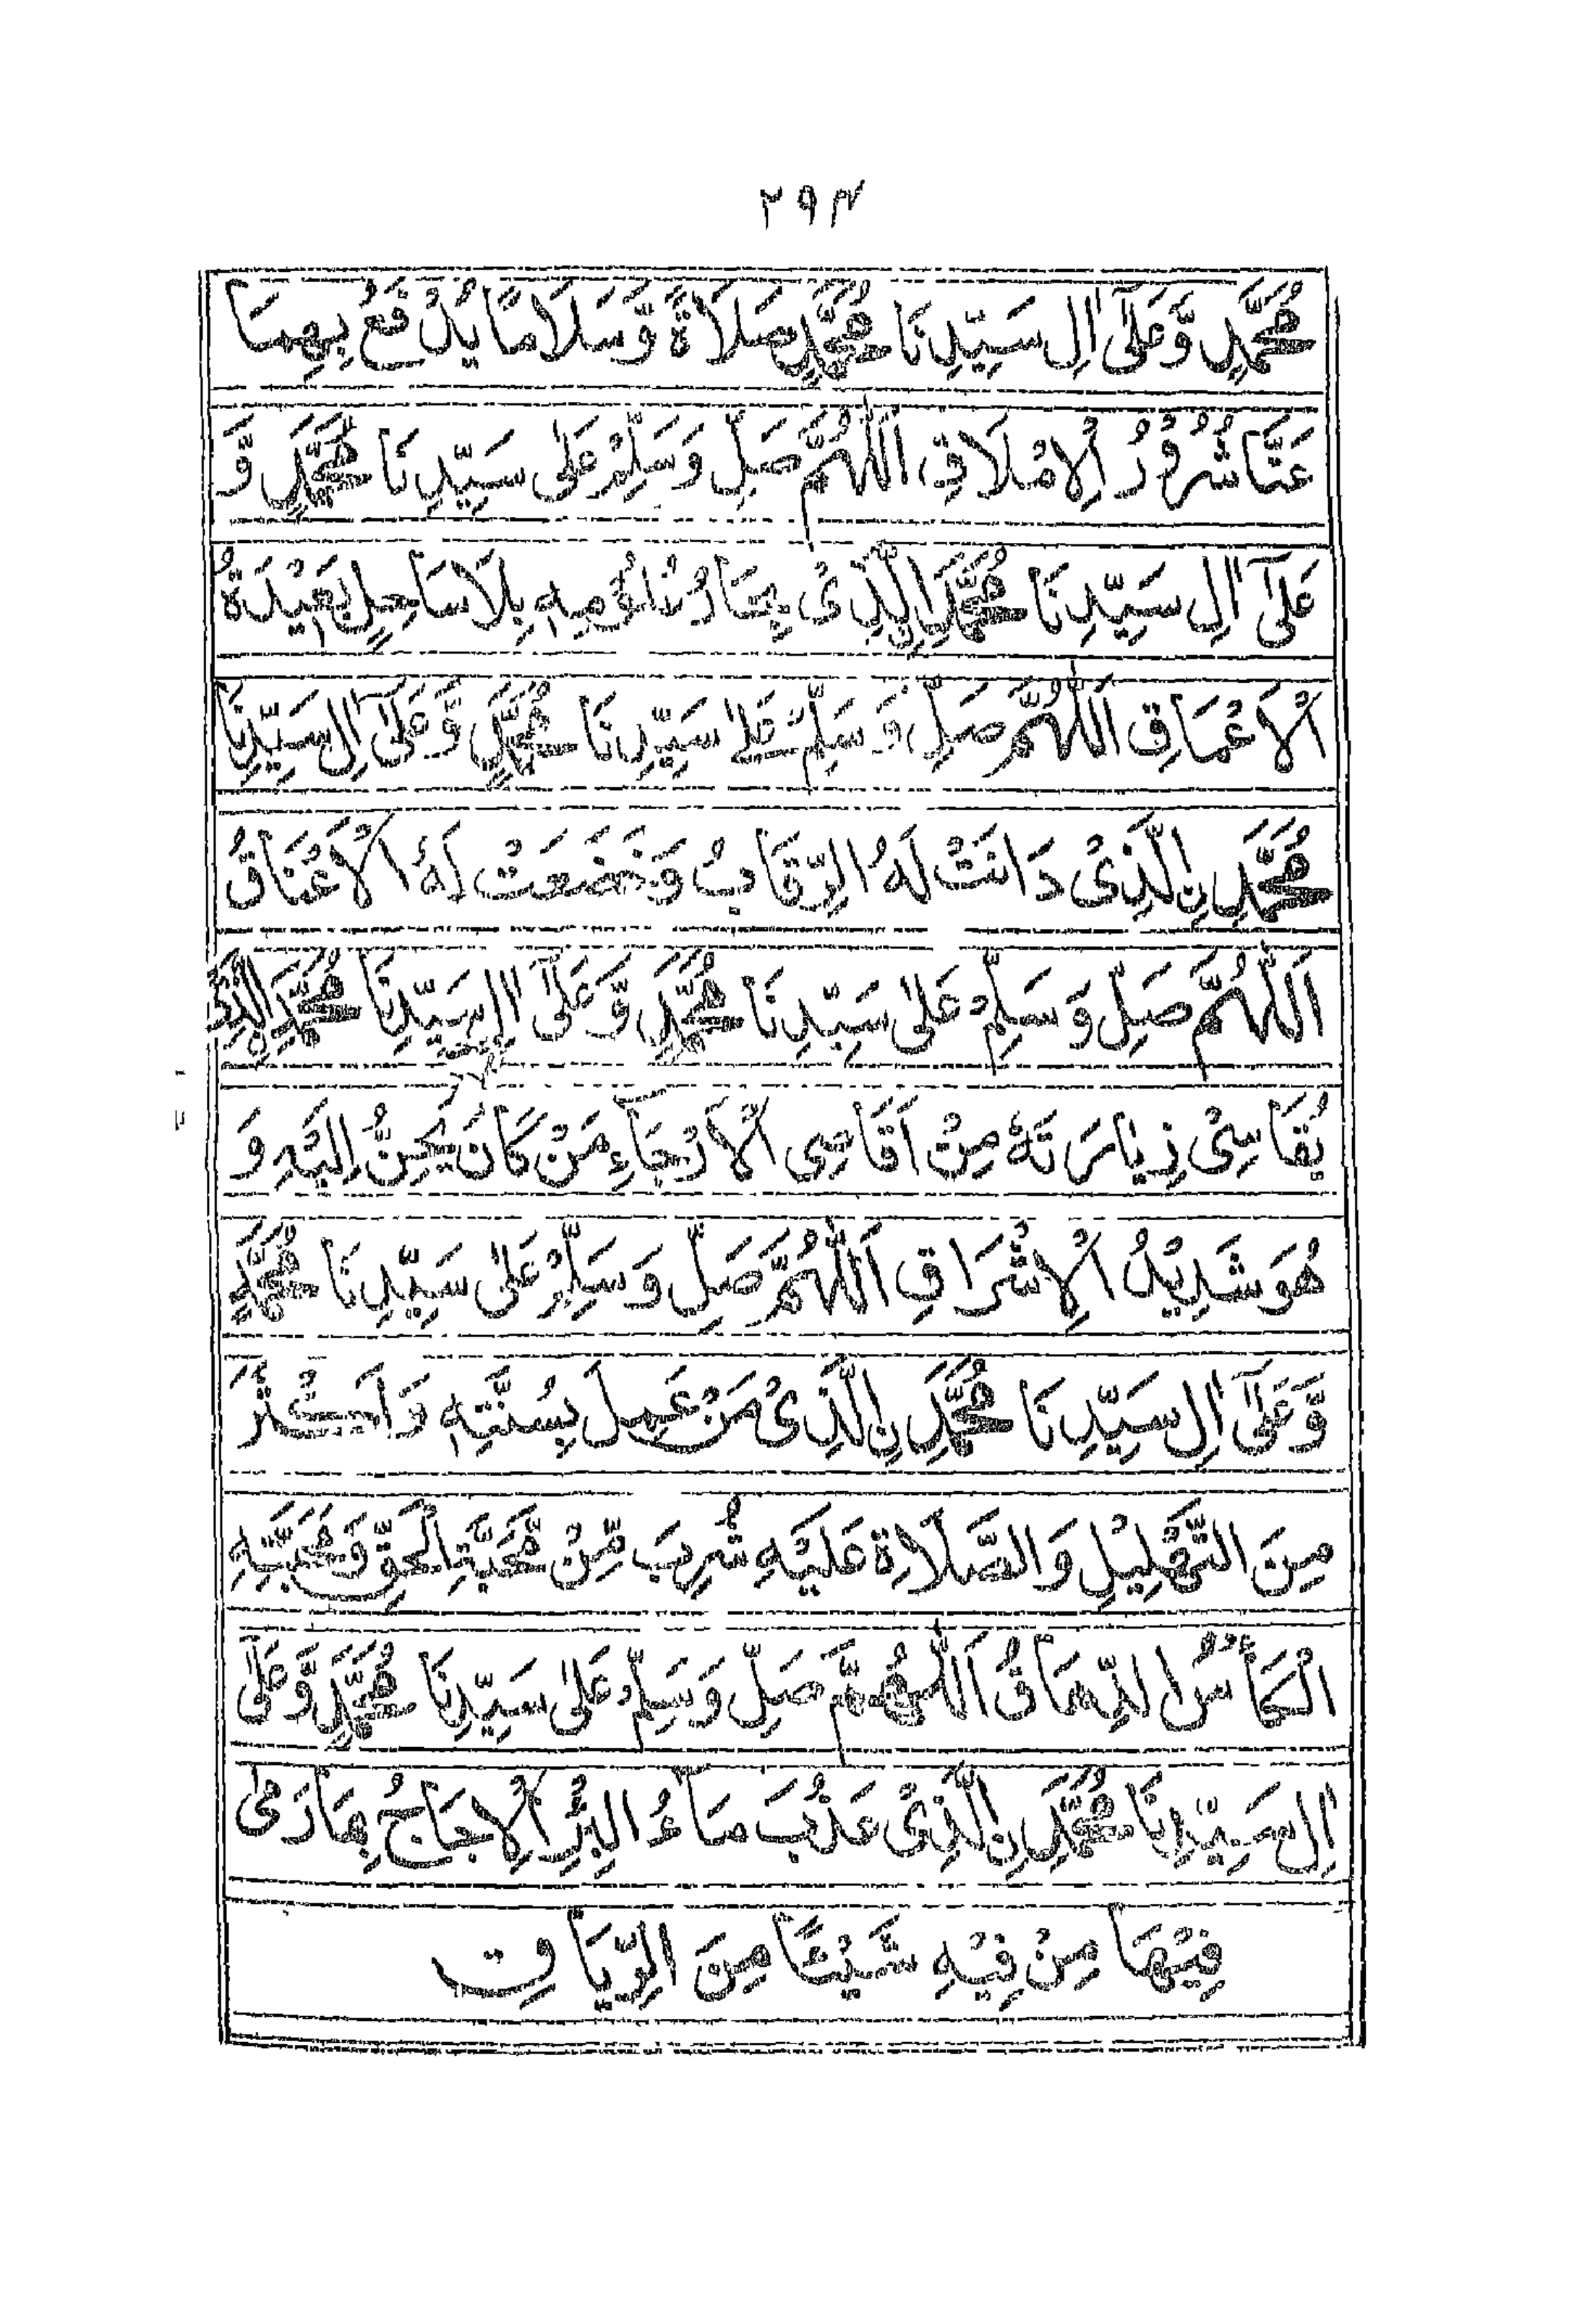 ۲۹۴
مُحَمَّدٍ وَّعَلٰٓى اٰلِ سَيِّدِنَا مُحَمَّدٍ صَلَاةً وَّسَلَامًا يُدْفَعُ بِهِمَا
عَنَّا شُرُوْرُ الْاِمْلَاقِ اَللّٰهُمَّ صَلِّ وَسَلِّمْ عَلٰى سَيِّدِنَا مُحَمَّدٍ وَّ
عَلٰٓى اٰلِ سَيِّدِنَا مُحَمَّدِ نِ الَّذِىْ بِحَارُ عُلُوْمِهٖ بِلَا سَاحِلٍ بَعِيْدَةُ
الْاَعْمَاقِ اَللّٰهُمَّ صَلِّ وَسَلِّمْ عَلٰى سَيِّدِنَا مُحَمَّدٍ وَّعَلٰٓى اٰلِ سَيِّدِنَا
مُحَمَّدِ نِ الَّذِىْ دَانَتْ لَهُ الرِّقَابُ وَخَضَعَتْ لَهُ الْاَعْنَاقُ
اَللّٰهُمَّ صَلِّ وَسَلِّمْ عَلٰى سَيِّدِنَا مُحَمَّدٍ وَّعَلٰٓى اٰلِ سَيِّدِنَا مُحَمَّدِ نِ الَّذِىْ
يُقَاسِىْ زِيَارَتَهٗ مِنْ اَقَاصِى الْاَرْجَآءِ مَنْ كَانَ يَحِنُّ اِلَيْهِ وَ
هُوَ شَدِيْدُ الْاِشْرَاقِ اَللّٰهُمَّ صَلِّ وَسَلِّمْ عَلٰى سَيِّدِنَا مُحَمَّدٍ
وَّعَلٰٓى اٰلِ سَيِّدِنَا مُحَمَّدِ نِ الَّذِىْ مَنْ عَمِلَ بِسُنَّتِهٖ وَاَكْثَرَ
مِنَ التَّهْلِيْلِ وَالصَّلَاةِ عَلَيْهِ شُرِبَ مِّنْ مَّحَبَّةِ الْحَقِّ وَمَحَبَّتِهِ
الْكَأْسُ الدِّهَاقُ اَللّٰهُمَّ صَلِّ وَسَلِّمْ عَلٰى سَيِّدِنَا مُحَمَّدٍ وَّعَلٰٓى
اٰلِ سَيِّدِنَا مُحَمَّدِ نِ الَّذِىْ عَذُبَ مَاءُ الْبِئْرِ الْاُجَاجُ بِمَا رَمٰى
فِيْهَا مِنْ فِيْهِ شَيْئًا مِنَ الرِّيَاقِ